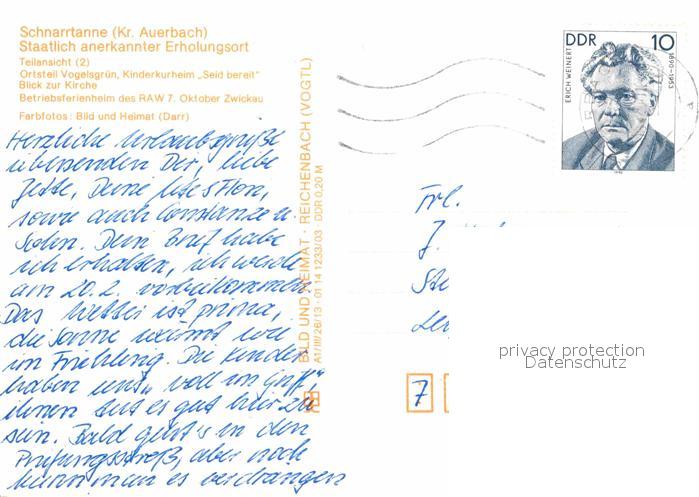 Schnarrtanne (Kr. Auerbach)
Staatlich anerkannter Erholungsort
Teilansicht (2)
Ortsteil Vogelsgrün, Kinderkurheim „Seid bereit"
Blick zur Kirche
Betriebsferienheim des RAW 7. Oktober Zwickau
Farbfotos: Bild und Heimat (Darr)
Herzliche Urlaubsgrüße
übersenden Dir, liebe
Jette, Deine
sowie auch Constanze u.
Dein Brief habe
ich erhalten, ich werde
am 20.2. vorbeikommen.
Das Wetter ist prima,
die Sonne wärmt wie
im Frühling. Die Kinder
haben uns „voll im Griff",
ihnen tut es gut hier zu
sein. Bald geht's in den
Prüfungsstreß, aber noch
kann man es verdrängen
BILD UND HEIMAT · REICHENBACH (VOGTL)
A1/III/26/13 · 01 14 1233/03 DDR 0,20 M
DDR 10
ERICH WEINERT
1890-1953
Frl.
J.
7
privacy protection
Datenschutz